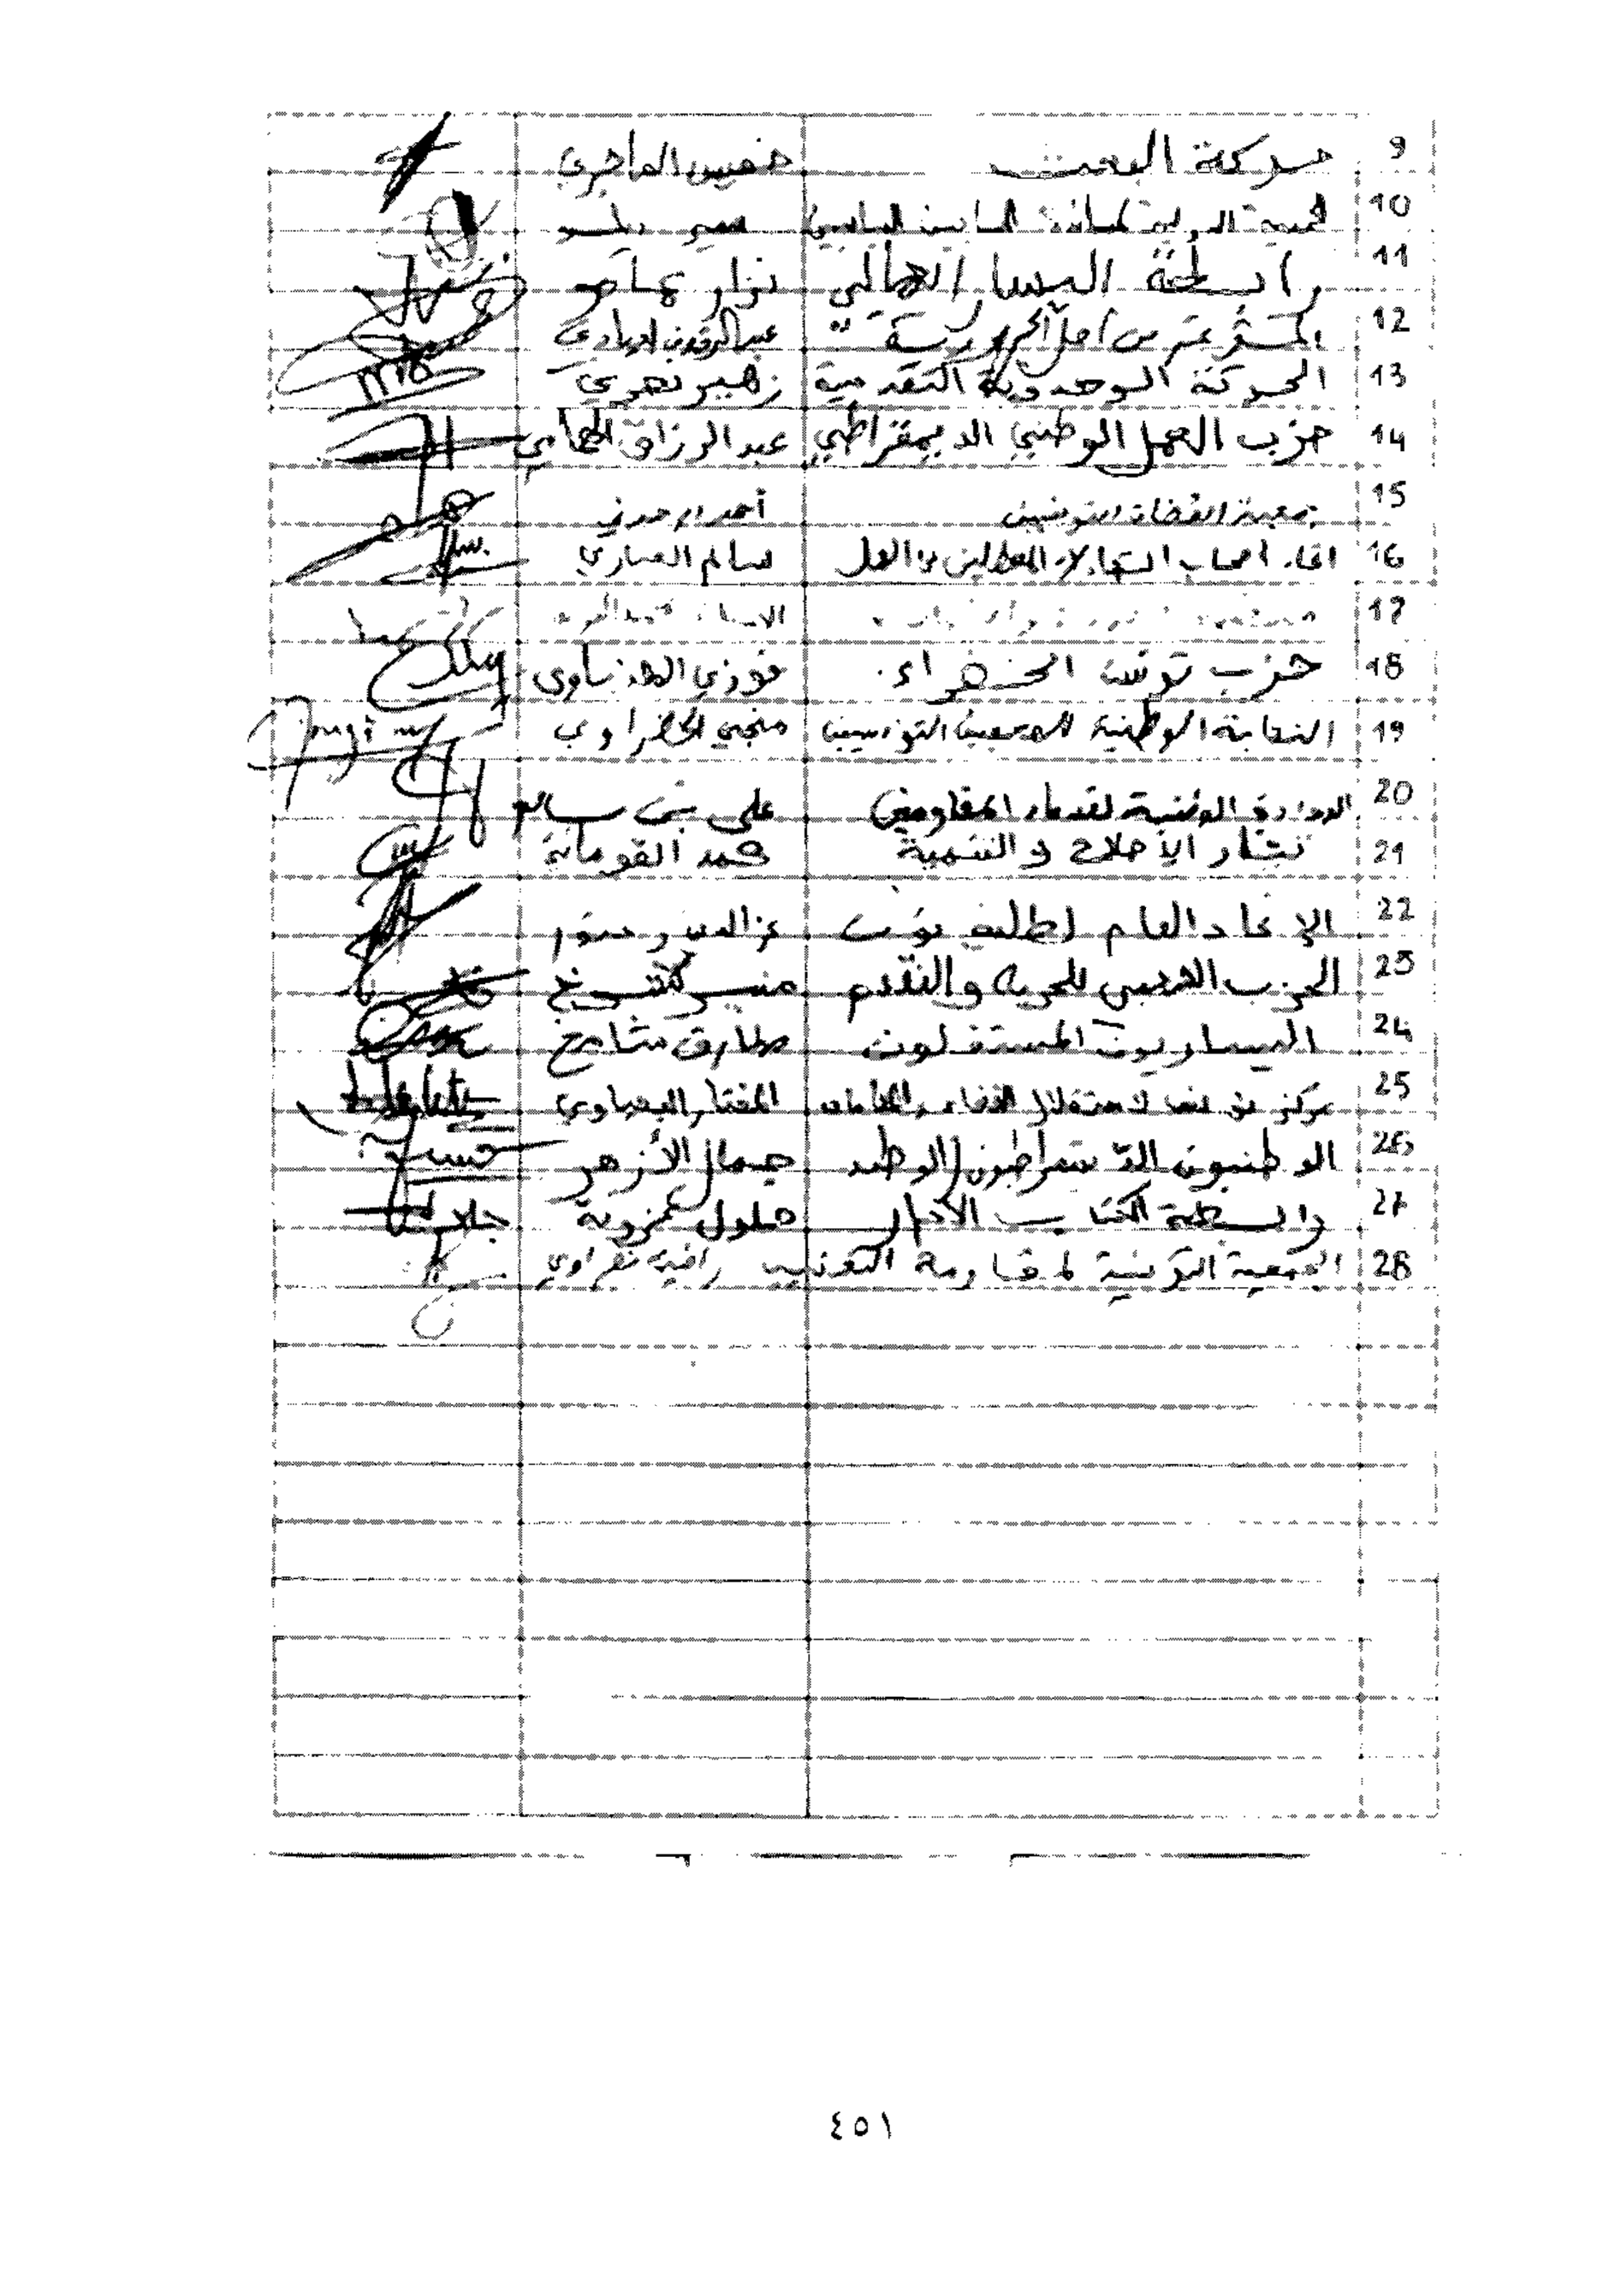 9 حركة البعث خميس الماجري
10 الجمعية الدولية لمساندة المساجين السياسيين سمير ديلو
11 رابطة اليسار العمالي نزار عمامو
12 المؤتمر من أجل الجمهورية عبد الرؤوف العيادي
13 الحركة الوحدوية التقدمية زهير نصري
14 حزب العمل الوطني الديمقراطي عبد الرزاق الهمامي
15 جمعية القضاة التونسيين أحمد الرحموني
16 اتحاد أصحاب الشهائد المعطلين عن العمل سالم العياري
17
18 حزب تونس الخضراء فوزي الهذباوي
19 النقابة الوطنية للصحفيين التونسيين منجي الخضراوي
20 الودادية الوطنية لقدماء المقاومين علي بن سالم
21 تيار الإصلاح والتنمية محمد القوماني
22 الإتحاد العام لطلبة تونس عز الدين زعتور
23 الحزب الشعبي للحرية والتقدم منير كشوخ
24 اليساريون المستقلون طارق مشايخ
25 مركز تونس لاستقلال القضاء والمحاماة المختار اليحياوي
26 الوطنيون الديمقراطيون (الوطد) جمال الأزهر
27 رابطة الكتاب الأحرار جلول عزونة
28 الجمعية التونسية لمقاومة التعذيب راضية نصراوي
٤٥١